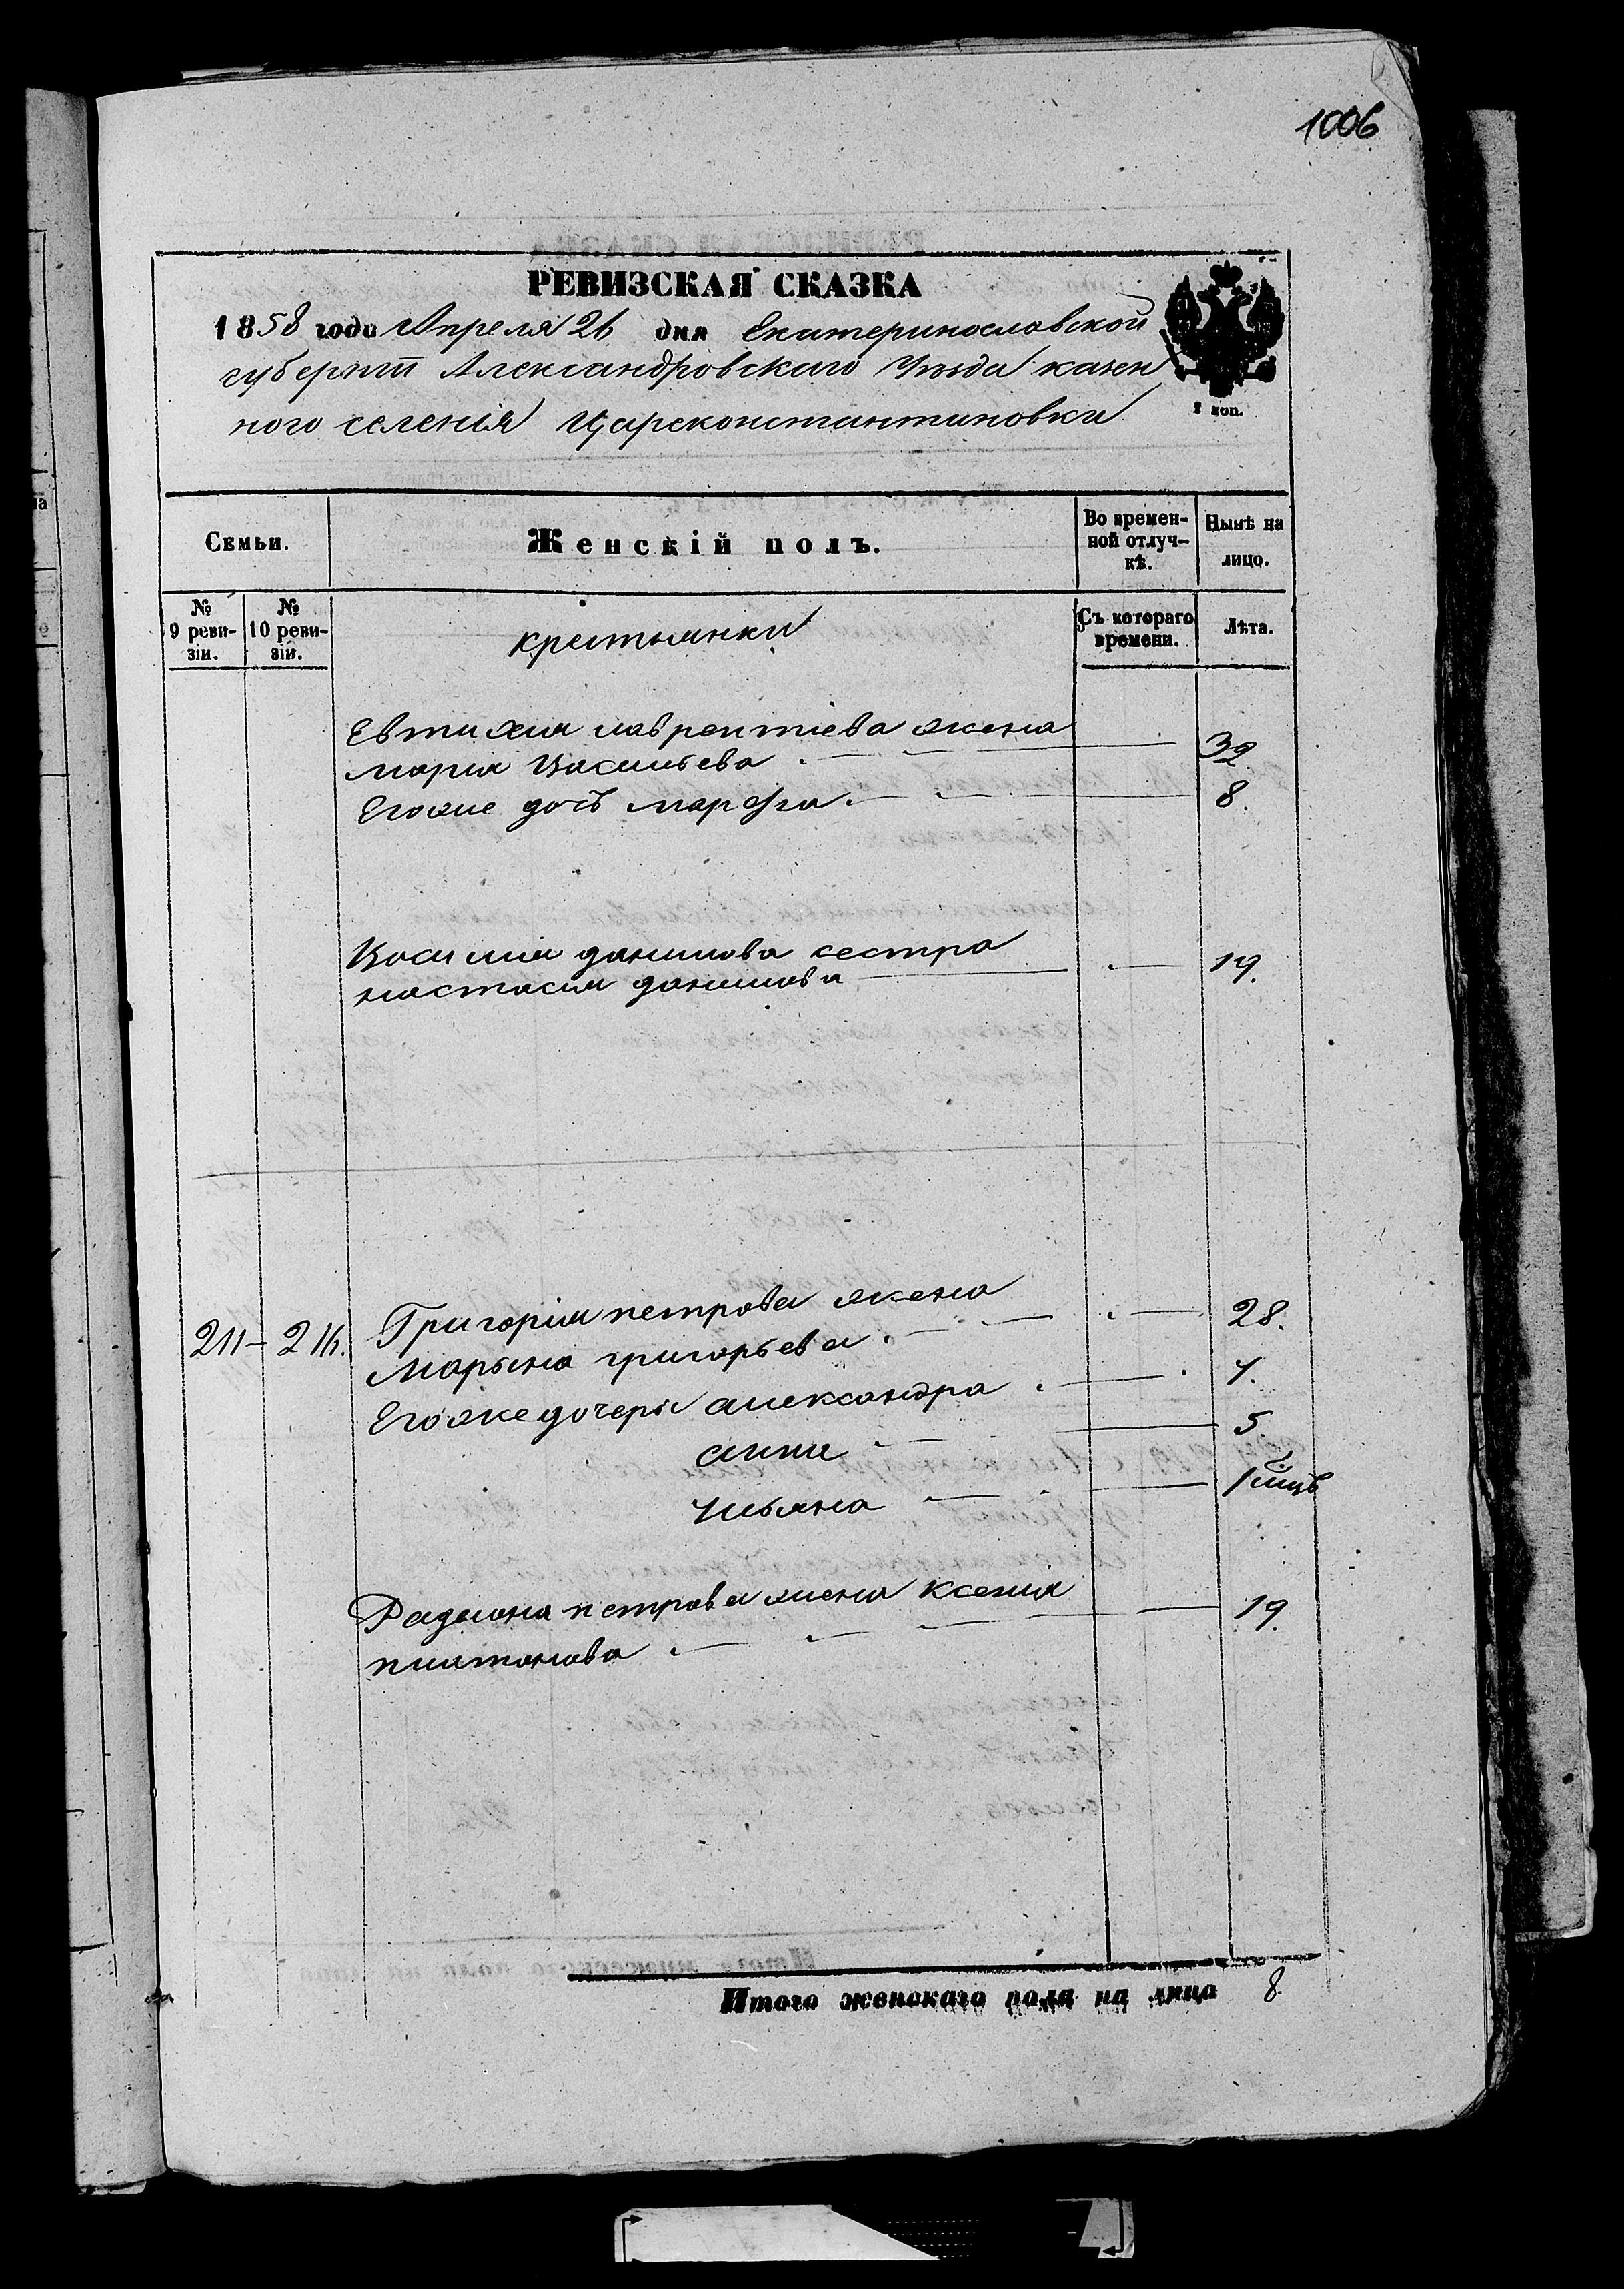 1006
РЕВИЗСКАЯ СКАЗКА
1858 года Апреля 26 дня Екатеринославской
губернии Александровскаго Уезда казен
ного селения Цареконстантиновки
2 коп.
Семьи.
Женскій полъ.
Во времен-
ной отлуч-
кѣ.
Нынѣ на
лицо.
№
9 реви-
зіи.
№
10 реви-
зій.
крестьянки
Съ котораго
времени.
Лѣта.
Евтихия лаврентіева жена
мария Васильева 32
Егоже дочь марфа 8.
Василия данилова сестра
настасия данилова 19.
211 – 216. Григорія петрова жена
Марьяна григорьева 28.
Егоже дочери александра 7.
анна 5
ульяна 1 мцъ
Радиона петрова жена Ксения
платонова 19.
Итого женскаго пола на лицо 8.